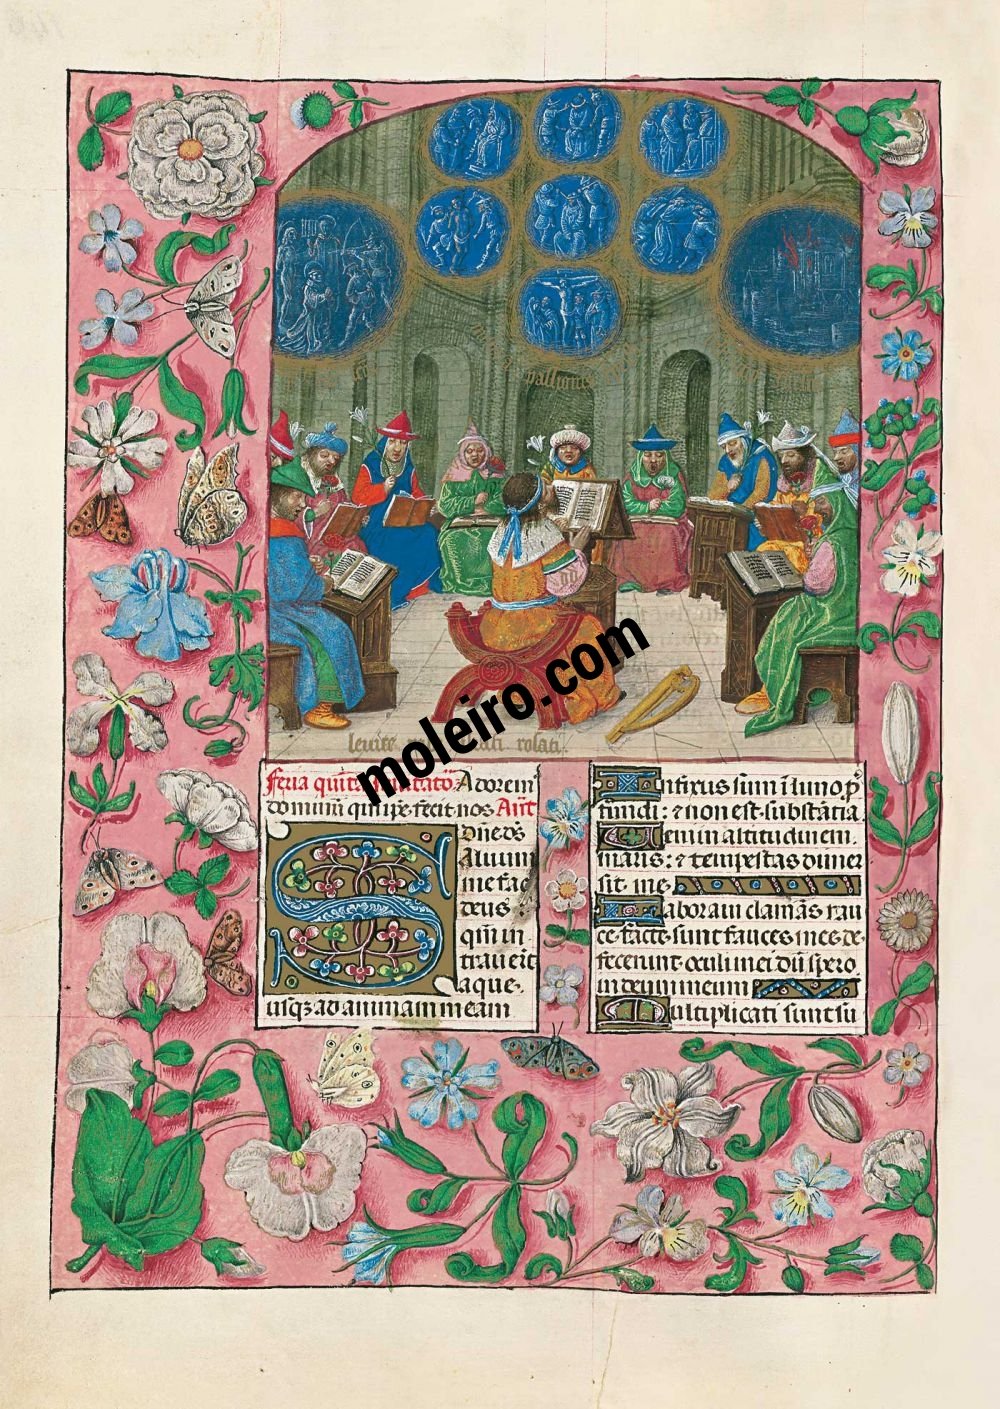 passiones
levite rosati
moleiro.com
Feria quinta Adorem
dominū qui ip̄e fecit nos Añt
Dñe ds̄
Saluum
me fac
deus
qm̄ in
traueīt
aque
usq̄ ad animam meam
Infixus sum ī limo p̄
fundi : ⁊ non est substātia
Veni in altitudinem
maris : ⁊ tempestas dimer
sit me
Laboraui clamās rau
ce facte sunt fauces mee de
fecerunt oculi mei dū spero
in deum meum
Multiplicati sunt su